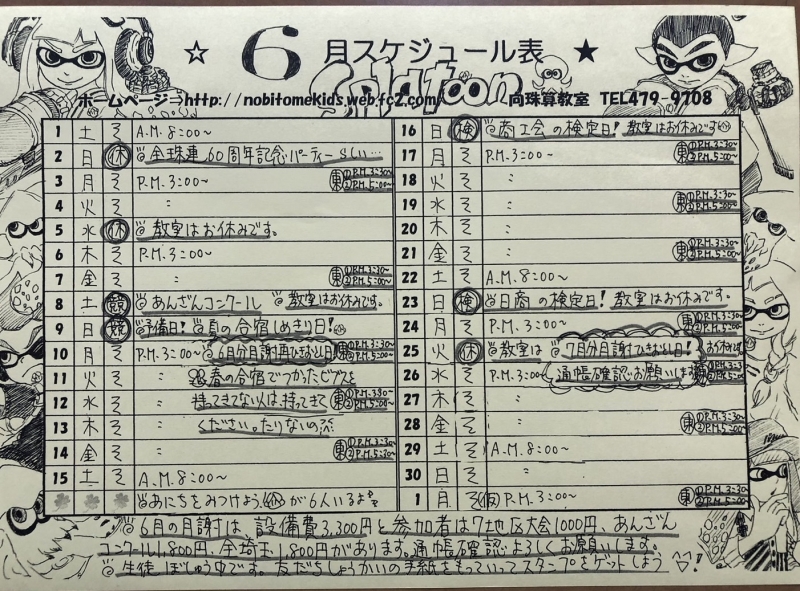 ☆ 6 月スケジュール表 ★
Splatoon
ホームページ⇒http://nobitomekids.web.fc2.com/ 向珠算教室 TEL479-9708
1 土 そ A.M.8:00~
2 日 休 全珠連60周年記念パーティーらしい…
3 月 そ P.M.3:00~ 東 ①P.M.3:30~ ②P.M.5:00~
4 火 そ 〃
5 水 休 教室はお休みです。
6 木 そ P.M.3:00~
7 金 そ 〃 東 ①P.M.3:30~ ②P.M.5:00~
8 土 競 あんざんコンクール 教室はお休みです。
9 日 競 予備日! 夏の合宿しめきり日!
10 月 そ P.M.3:00~ 6月分月謝再ひきおとし日 東 ①P.M.3:30~ ②P.M.5:00~
11 火 そ 〃 春の合宿でつかったビブスを
12 水 そ 〃 持ってきてない人は持ってきて 東 ①P.M.3:30~ ②P.M.5:00~
13 木 そ 〃 ください。たりないの
14 金 そ 〃 東 ①P.M.3:30~ ②P.M.5:30~
15 土 そ A.M.8:00~
あにちをみつけよう が6人いるよ
16 日 検 商工会の検定日! 教室はお休みです
17 月 そ P.M.3:00~ 東 ①P.M.3:30~ ②P.M.5:00~
18 火 そ 〃
19 水 そ 〃 東 ①P.M.3:30~ ②P.M.5:00~
20 木 そ 〃
21 金 そ 〃 東 ①P.M.3:30~ ②P.M.5:00~
22 土 そ A.M.8:00~
23 日 検 日商の検定日! 教室はお休みです。
24 月 そ P.M.3:00~ 東 ①P.M.3:30~ ②P.M.5:00~
25 火 休 教室は お休みです 7月分月謝ひきおとし日!
26 水 そ P.M.3:00~ 通帳確認お願いします
27 木 そ 〃
28 金 そ 〃 東 ①P.M.3:30~ ②P.M.5:00~
29 土 そ A.M.8:00~
30 日 そ 〃
1 月 そ P.M.3:00~ 東 ①P.M.3:30~ ②P.M.5:00~
6月の月謝は、設備費3,300円と参加者は7地区大会1000円、あんざん
コンクール1,800円、全埼玉1,800円があります。通帳確認よろしくお願いします。
生徒ぼしゅう中です。友だちしょうかいの手紙をもっていってスタンプをゲットしよう!